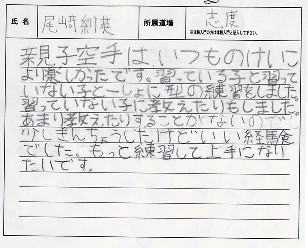 氏名 尾﨑 所属道場 志度
親子空手は、いつものけいこ
より楽しかったです。習っている子と習って
いない子といっしょに型の練習をしました。
習っていない子に教えたりもしました。
あまり教えたりすることがないので
少しきんちょうしたけどいい経験
でした。もっと練習して上手になり
たいです。